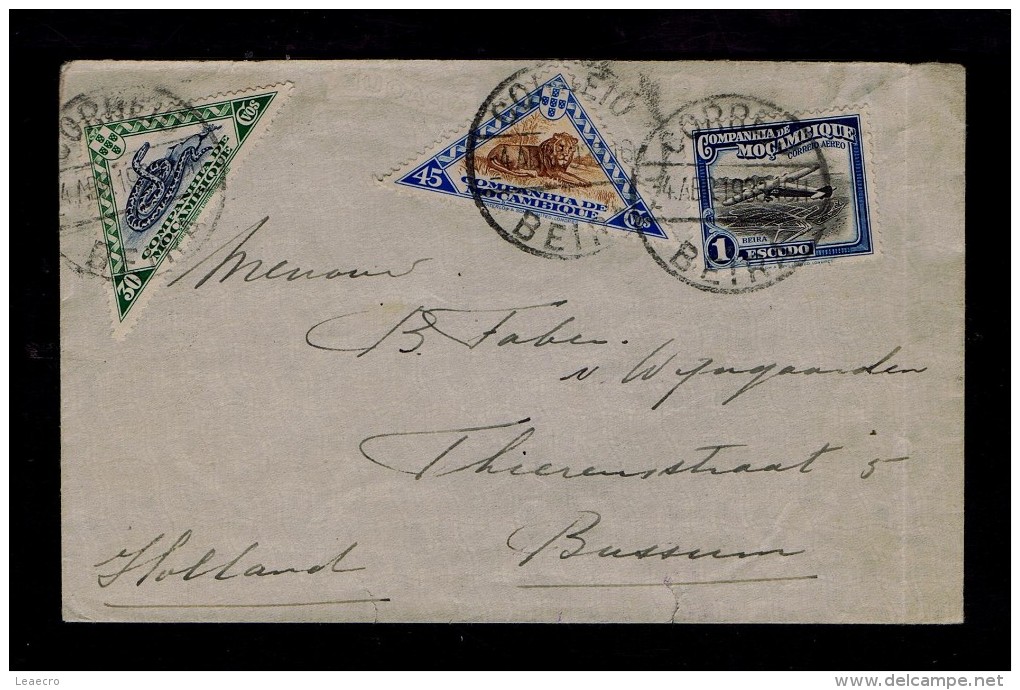 CORREIO
BEIRA
30
CVOS
COMPANHIA DE
MOÇAMBIQUE
CORREIO
BEIRA
45
CVOS
COMPANHIA DE
MOÇAMBIQUE
CORREIO
BEIRA
COMPANHIA DE
MOÇAMBIQUE
CORREIO AEREO
BEIRA
1 ESCUDO
B. Faber.
v. Wyngaarden
Thierensstraat 5
Bussum
Holland
Leaecro
www.delcampe.net